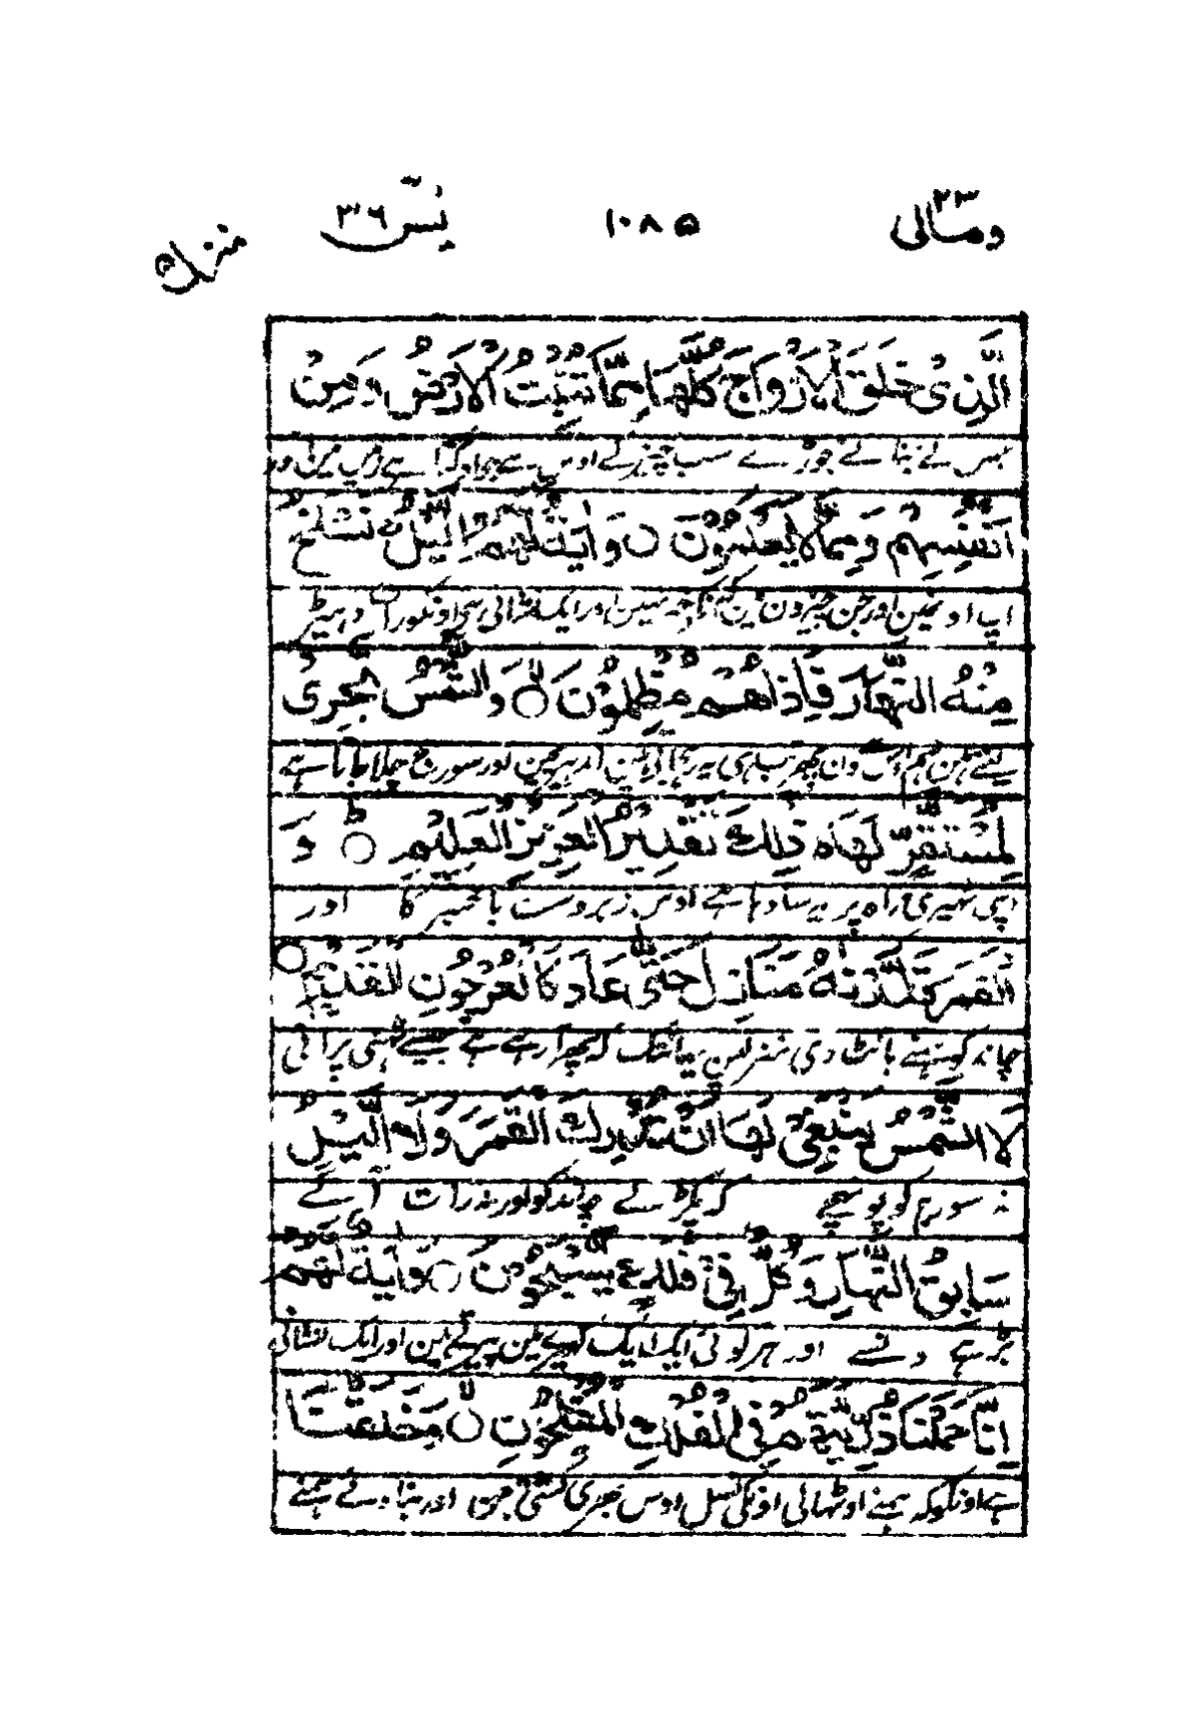 ومالی ٢٣ ١٠٨٥ یٰسٓ ٣٦
منزل ٥
الَّذِىْ خَلَقَ الْاَزْوَاجَ كُلَّهَا مِمَّا تُنْۢبِتُ الْاَرْضُ وَمِنْ
جس نے بنائے جوڑے سب چیز کے اوس سے جو اوگتا ہے زمین مین اور
اَنْفُسِهِمْ وَمِمَّا لَا يَعْلَمُوْنَ ○ وَاٰيَةٌ لَّهُمُ الَّيْلُ ۖ نَسْلَخُ
اپ اونمین اور جن چیزون مین کہ اونکو نہین اور ایک نشانی ہی اونکو رات
مِنْهُ النَّهَارَ فَاِذَا هُمْ مُّظْلِمُوْنَ ○ وَالشَّمْسُ تَجْرِىْ
ہین اندہیرے مین اور سورج چلا جاتا ہے
لِمُسْتَقَرٍّ لَّهَا ؕ ذٰلِكَ تَقْدِيْرُ الْعَزِيْزِ الْعَلِيْمِ ○ وَ
اپنی ٹہیری راہ پر یہ سادہا ہے اوس زبردست باخبر کا اور
الْقَمَرَ قَدَّرْنٰهُ مَنَازِلَ حَتّٰى عَادَ كَالْعُرْجُوْنِ الْقَدِيْمِ ○
چاند کو ہمنے بانٹ دی منزلین یہانتک کہ پھر آ رہے ہے جیسے ٹہنی پرانی
لَا الشَّمْسُ يَنْۢبَغِىْ لَهَاۤ اَنْ تُدْرِكَ الْقَمَرَ وَلَا الَّيْلُ
نہ سورج کو پہنچے کہ پکڑ لے چاند کو اور نہ رات آگے
سَابِقُ النَّهَارِ ؕ وَكُلٌّ فِىْ فَلَكٍ يَّسْبَحُوْنَ ○ وَاٰيَةٌ لَّهُمْ
بڑہے دنسے اور ہر کوئی ایک ایک گہیرے مین پیرتے ہین اور ایک نشانی
اِنَّا حَمَلْنَا ذُرِّيَّتَهُمْ فِى الْفُلْكِ الْمَشْحُوْنِ ○ وَخَلَقْنَا
ہے اونکو کہ ہمنے اوٹھالی اونکی نسل اوس بھری کشتی مین اور بنا دئے ہمنے